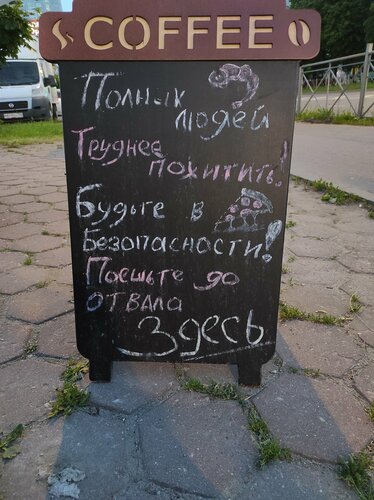 COFFEE
Полных
людей
Труднее
похитить!
Будьте в
Безопасности!
Посшьте до
отвала
Здесь